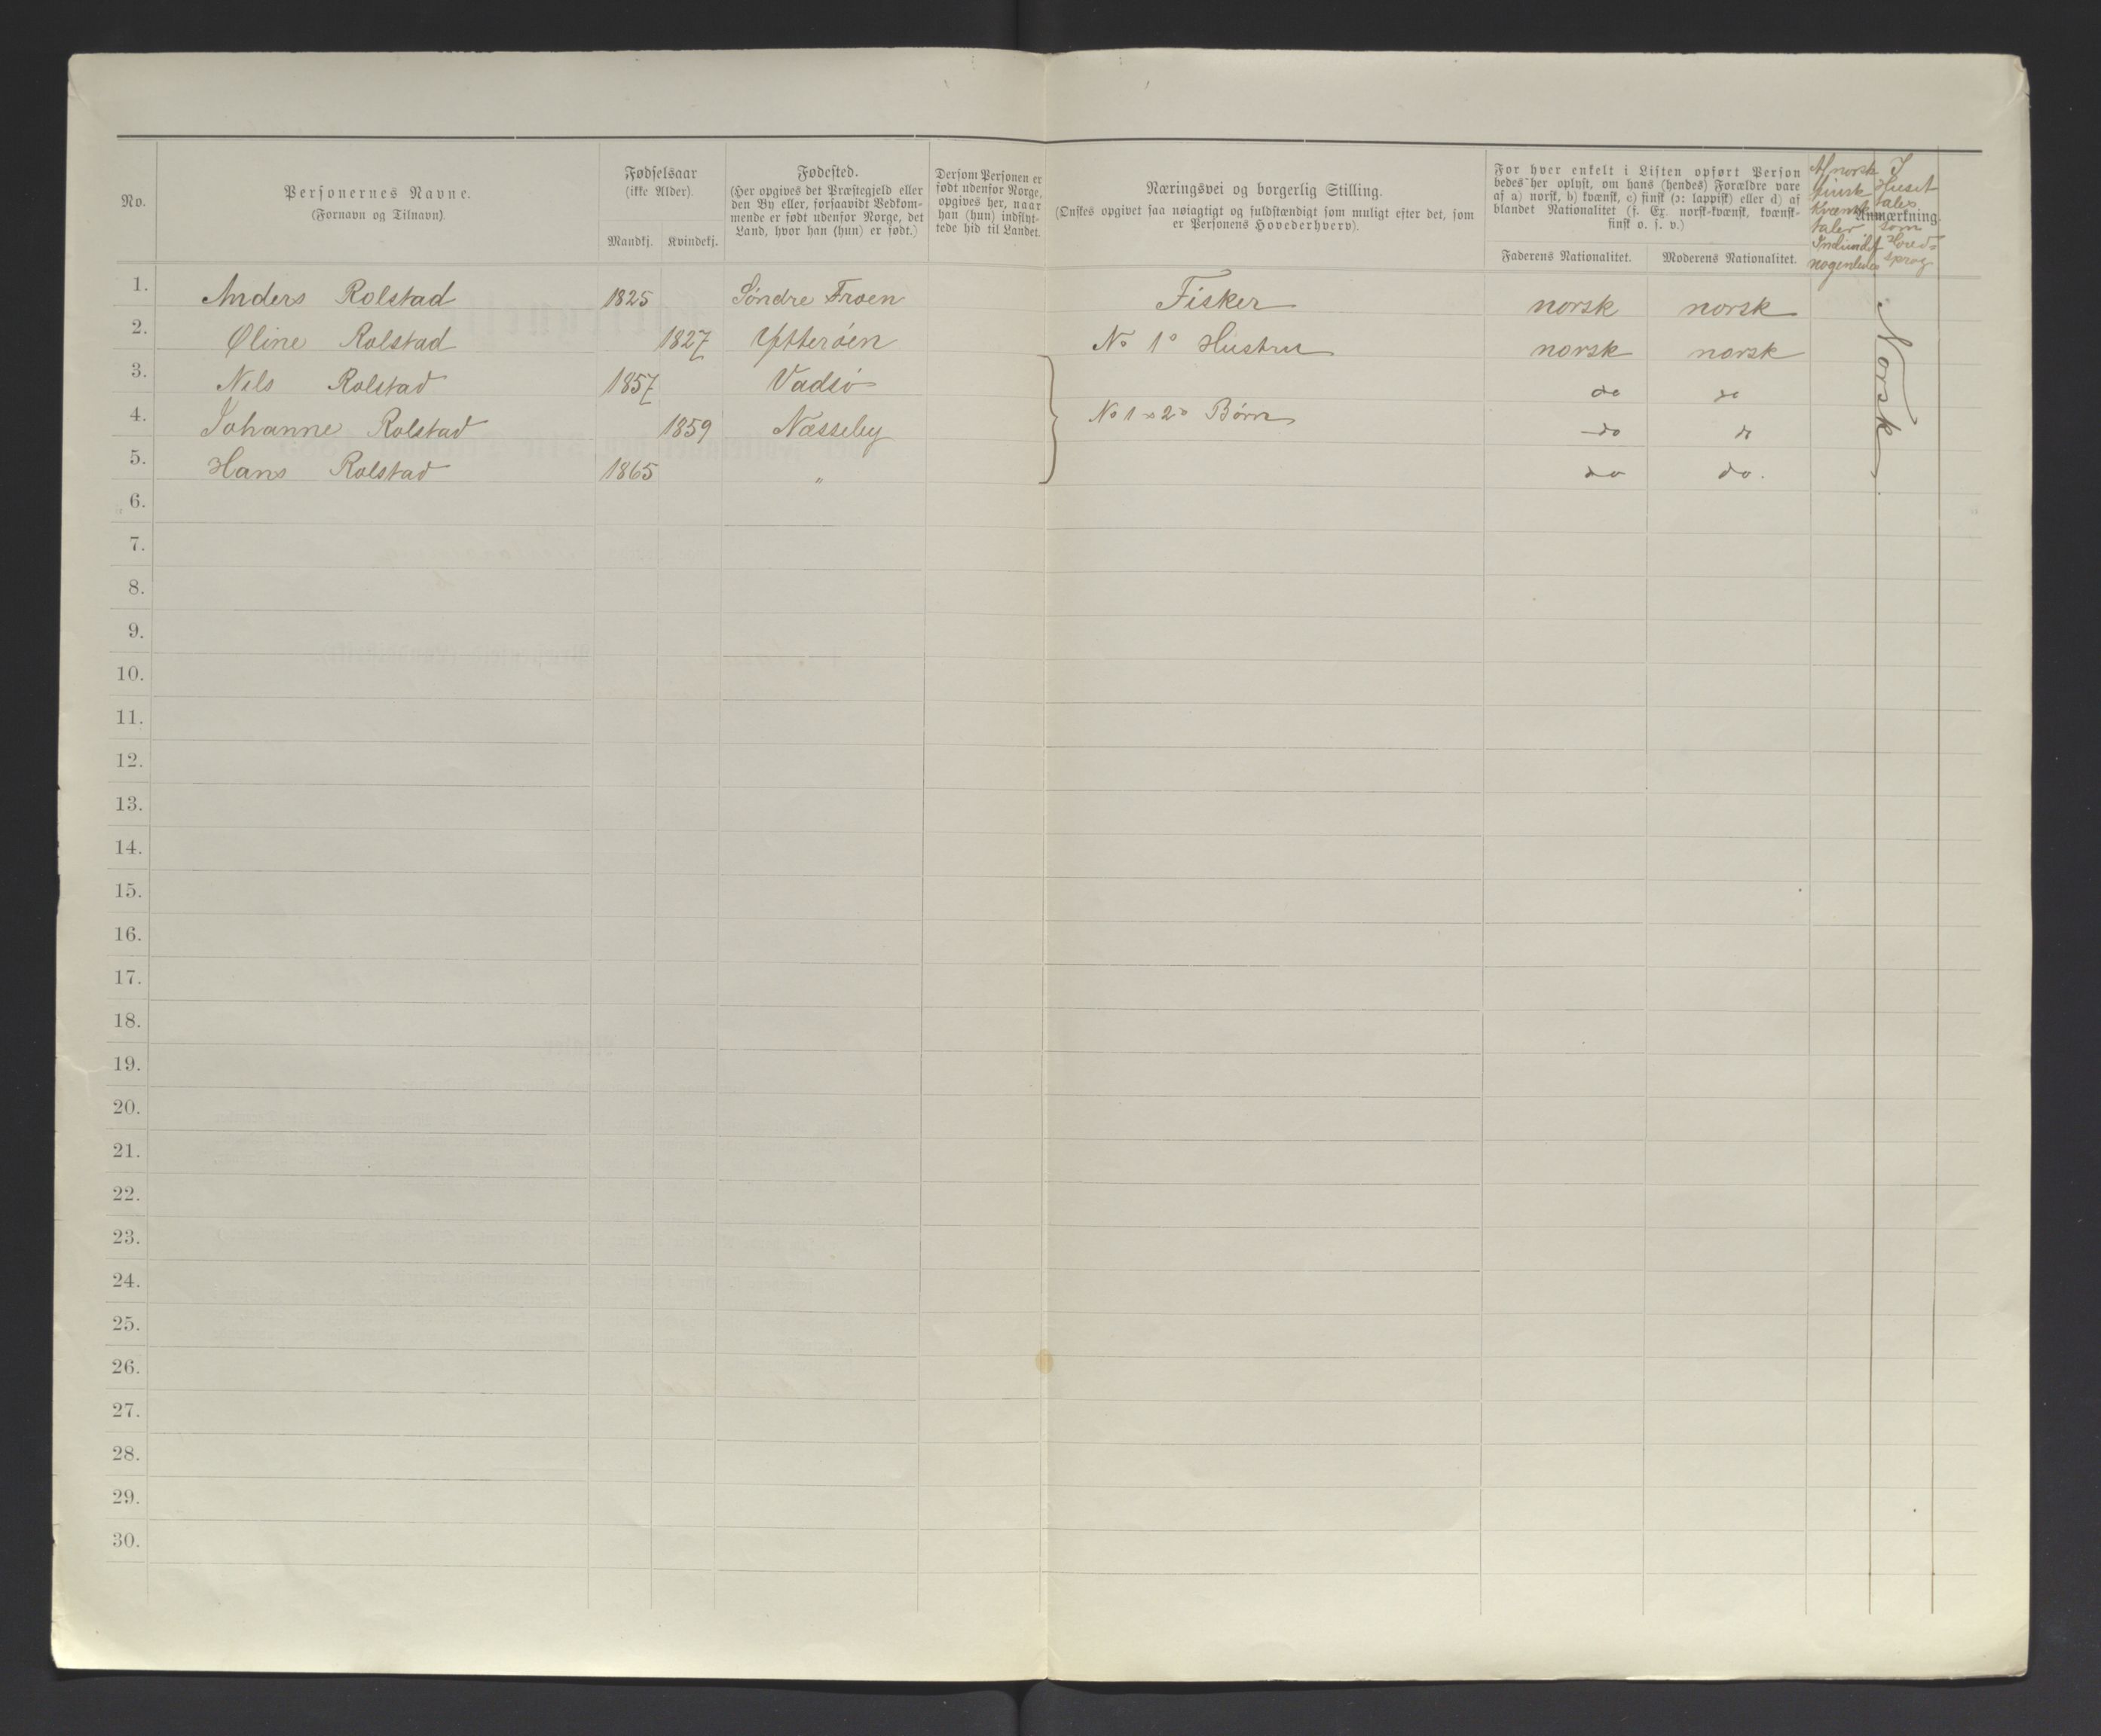 No.
Personernes Navne.
(Fornavn og Tilnavn)
Fødselsaar
(ikke Alder).
Mandkj. Kvindekj.
Fødested.
(Her opgives det Præstegjeld eller
den By eller, forsaavidt Vedkom-
mende er født udenfor Norge, det
Land, hvor han (hun) er født.)
Dersom Personen er
født udenfor Norge,
opgives her, naar
han (hun) indflyt-
tede hid til Landet.
Næringsvei og borgerlig Stilling.
(Ønskes opgivet saa nøiagtigt og fuldstændigt som muligt efter det, som
er Personens Hovederhverv).
For hver enkelt i Listen opført Person
bedes her oplyst, om hans (hendes) Forældre vare
af a) norsk, b) kvænsk, c) finsk (ɔ: lappisk) eller d) af
blandet Nationalitet (f. Ex. norsk-kvænsk, kvænsk-
finsk o. s. v.)
Faderens Nationalitet. Moderens Nationalitet.
Anmærkning.
Af norsk
finsk
Kvænsk
taler
Individet
nogenlede
I
Huset
tales
som
Hoved-
sprog
1. Anders Rolstad 1825 Søndre Froen Fisker norsk norsk
2. Øline Rolstad 1827 Ytterøen No 1s Hustru norsk norsk
3. Nils Rolstad 1857 Vadsø do do
4. Johanne Rolstad 1859 Næsseby No 1 & 2s Børn do do
5. Hans Rolstad 1865 " do do.
Norsk
6.
7.
8.
9.
10.
11.
12.
13.
14.
15.
16.
17.
18.
19.
20.
21.
22.
23.
24.
25.
26.
27.
28.
29.
30.